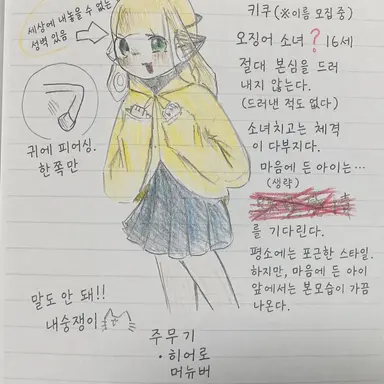 세상에 내놓을 수 없는
성벽 있음
키쿠 (※이름 모집 중)
오징어 소녀 ? 16세
절대 본심을 드러
내지 않는다.
(드러낸 적도 없다)
소녀치고는 체격
이 다부지다.
마음에 든 아이는…
(생략)
를 기다린다.
평소에는 포근한 스타일.
하지만, 마음에 든 아이
앞에서는 본모습이 가끔
나온다.
귀에 피어싱.
한쪽만
말도 안 돼!!
내숭쟁이
주무기
・히어로
머뉴버